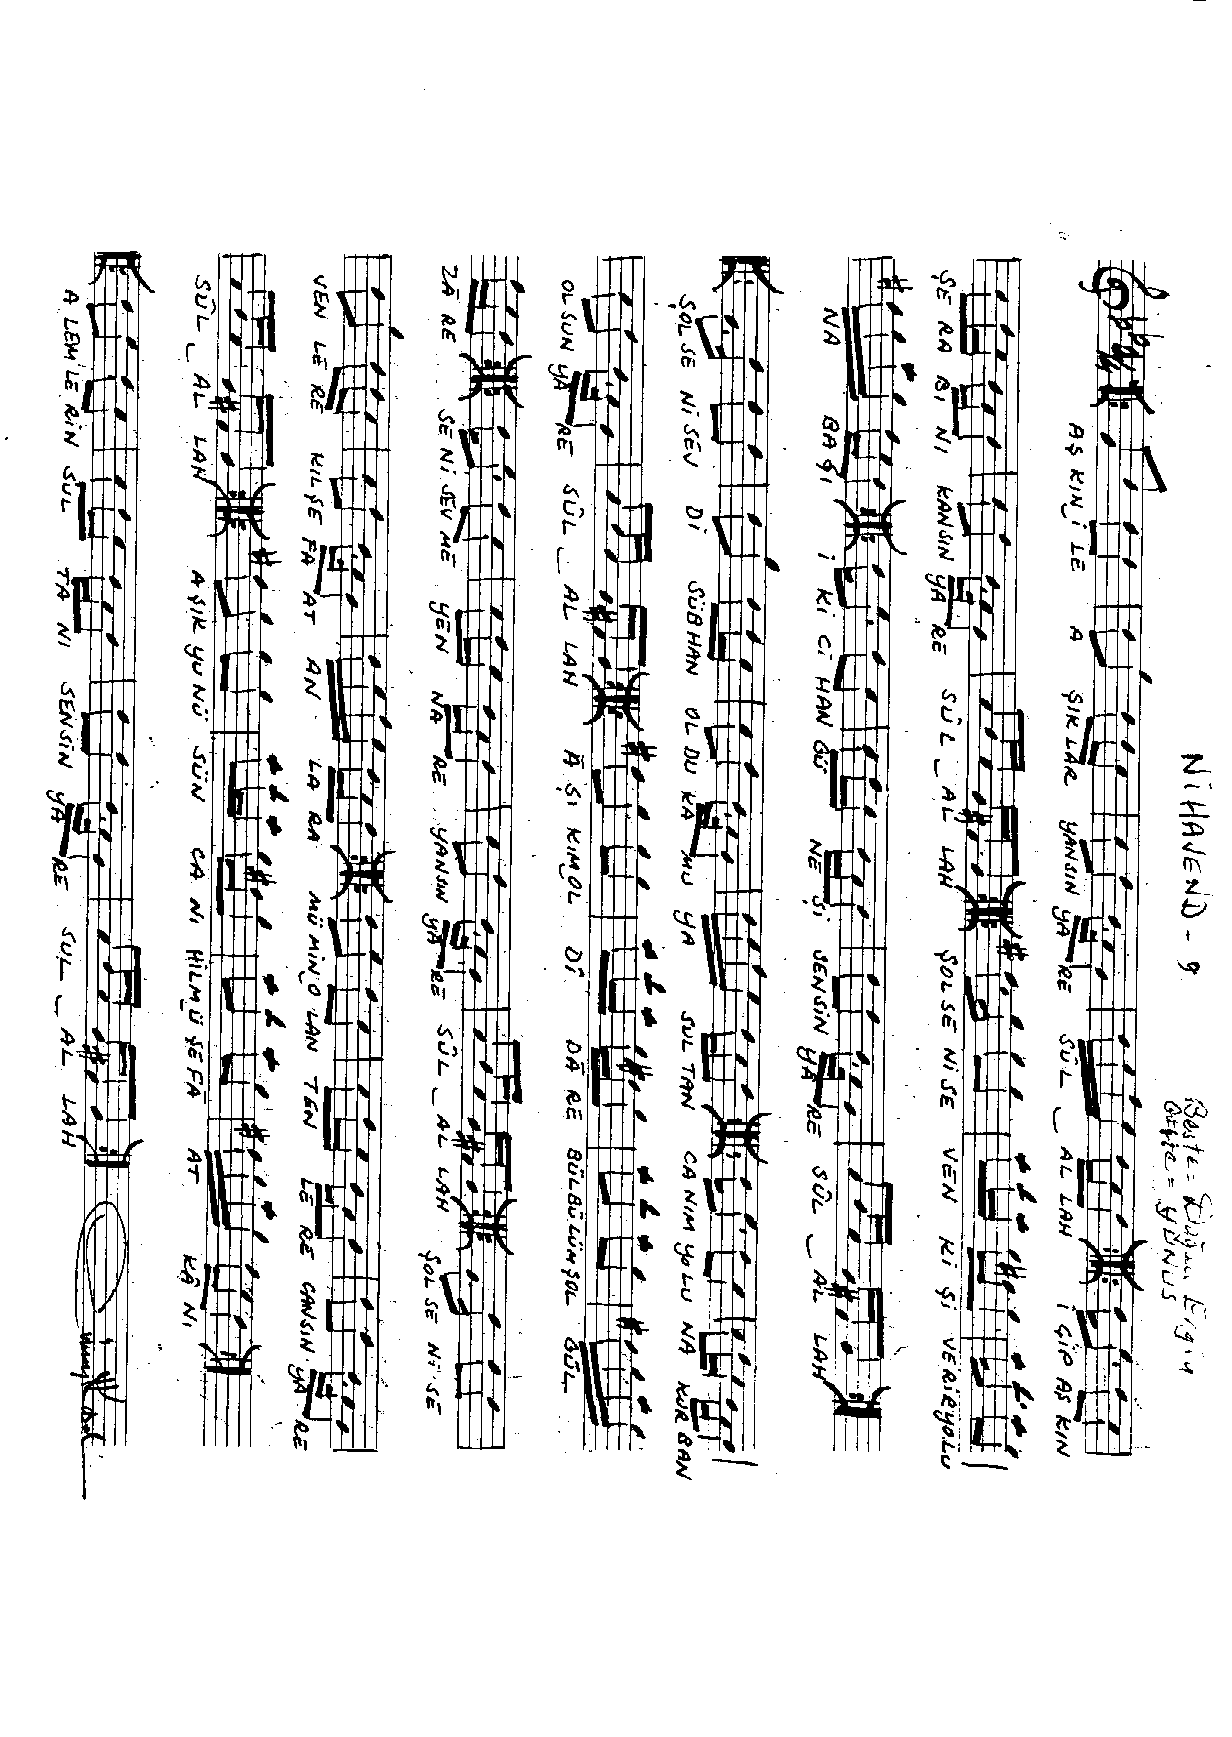 NİHAVEND - 9
Beste =
Güfte = YUNUS
AŞ KIN İ LE A ŞIK LAR YANSIN YA RE SÛL AL LAH İ ÇİP AŞ KIN
ŞE RA BI NI KANSIN YA RE SÛL AL LAH ŞOL SE Nİ SE VEN Kİ Şİ VERİR YOLU
NA BA ŞI İ Kİ Cİ HAN GÜ NE Şİ SENSİN YA RE SÛL AL LAH
ŞOL SE Nİ SEV Dİ SÜBHAN OL DU KA MU YA SUL TAN CA NIM YO LU NA KUR BAN
OL SUN YA RE SÛL AL LAH Â ŞI KIM OL Dİ DÂ RE BÜLBÜLÜM ŞOL GÜL
ZÂ RE SE Nİ SEV ME YEN NA RE YANSIN YA RE SÛL AL LAH ŞOL SE Nİ SE
VEN LE RE KIL ŞE FA AT AN LA RA MÜ MİN O LAN TEN LE RE CANSIN YA RE
SÛL AL LAH A ŞIK YU NÜ SÜN CA NI HİL MÜ ŞE FÂ AT KÂ NI
A LEM LE RİN SUL TA NI SENSİN YA RE SUL AL LAH